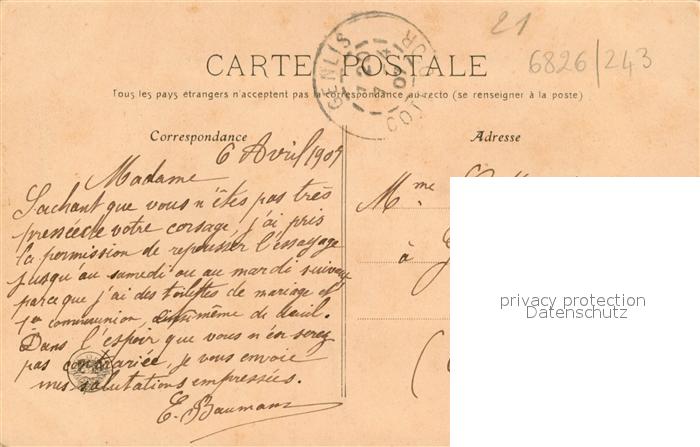 21
6826/243
GENLIS
CÔTE D'OR
CARTE POSTALE
Tous les pays étrangers n'acceptent pas la correspondance au recto (se renseigner à la poste)
Correspondance
Adresse
6 Avril 1904
Madame
Sachant que vous n'êtes pas très
pressée de votre corsage, j'ai pris
la permission de repousser l'essayage
jusqu'au samedi ou au mardi suivant
parce que j'ai des toilettes de mariage et
1re communion même de deuil.
Dans l'espoir que vous n'en serez
pas contrariée, je vous envoie
mes salutations empressées.
E. Baumann
Mme
à
privacy protection
Datenschutz